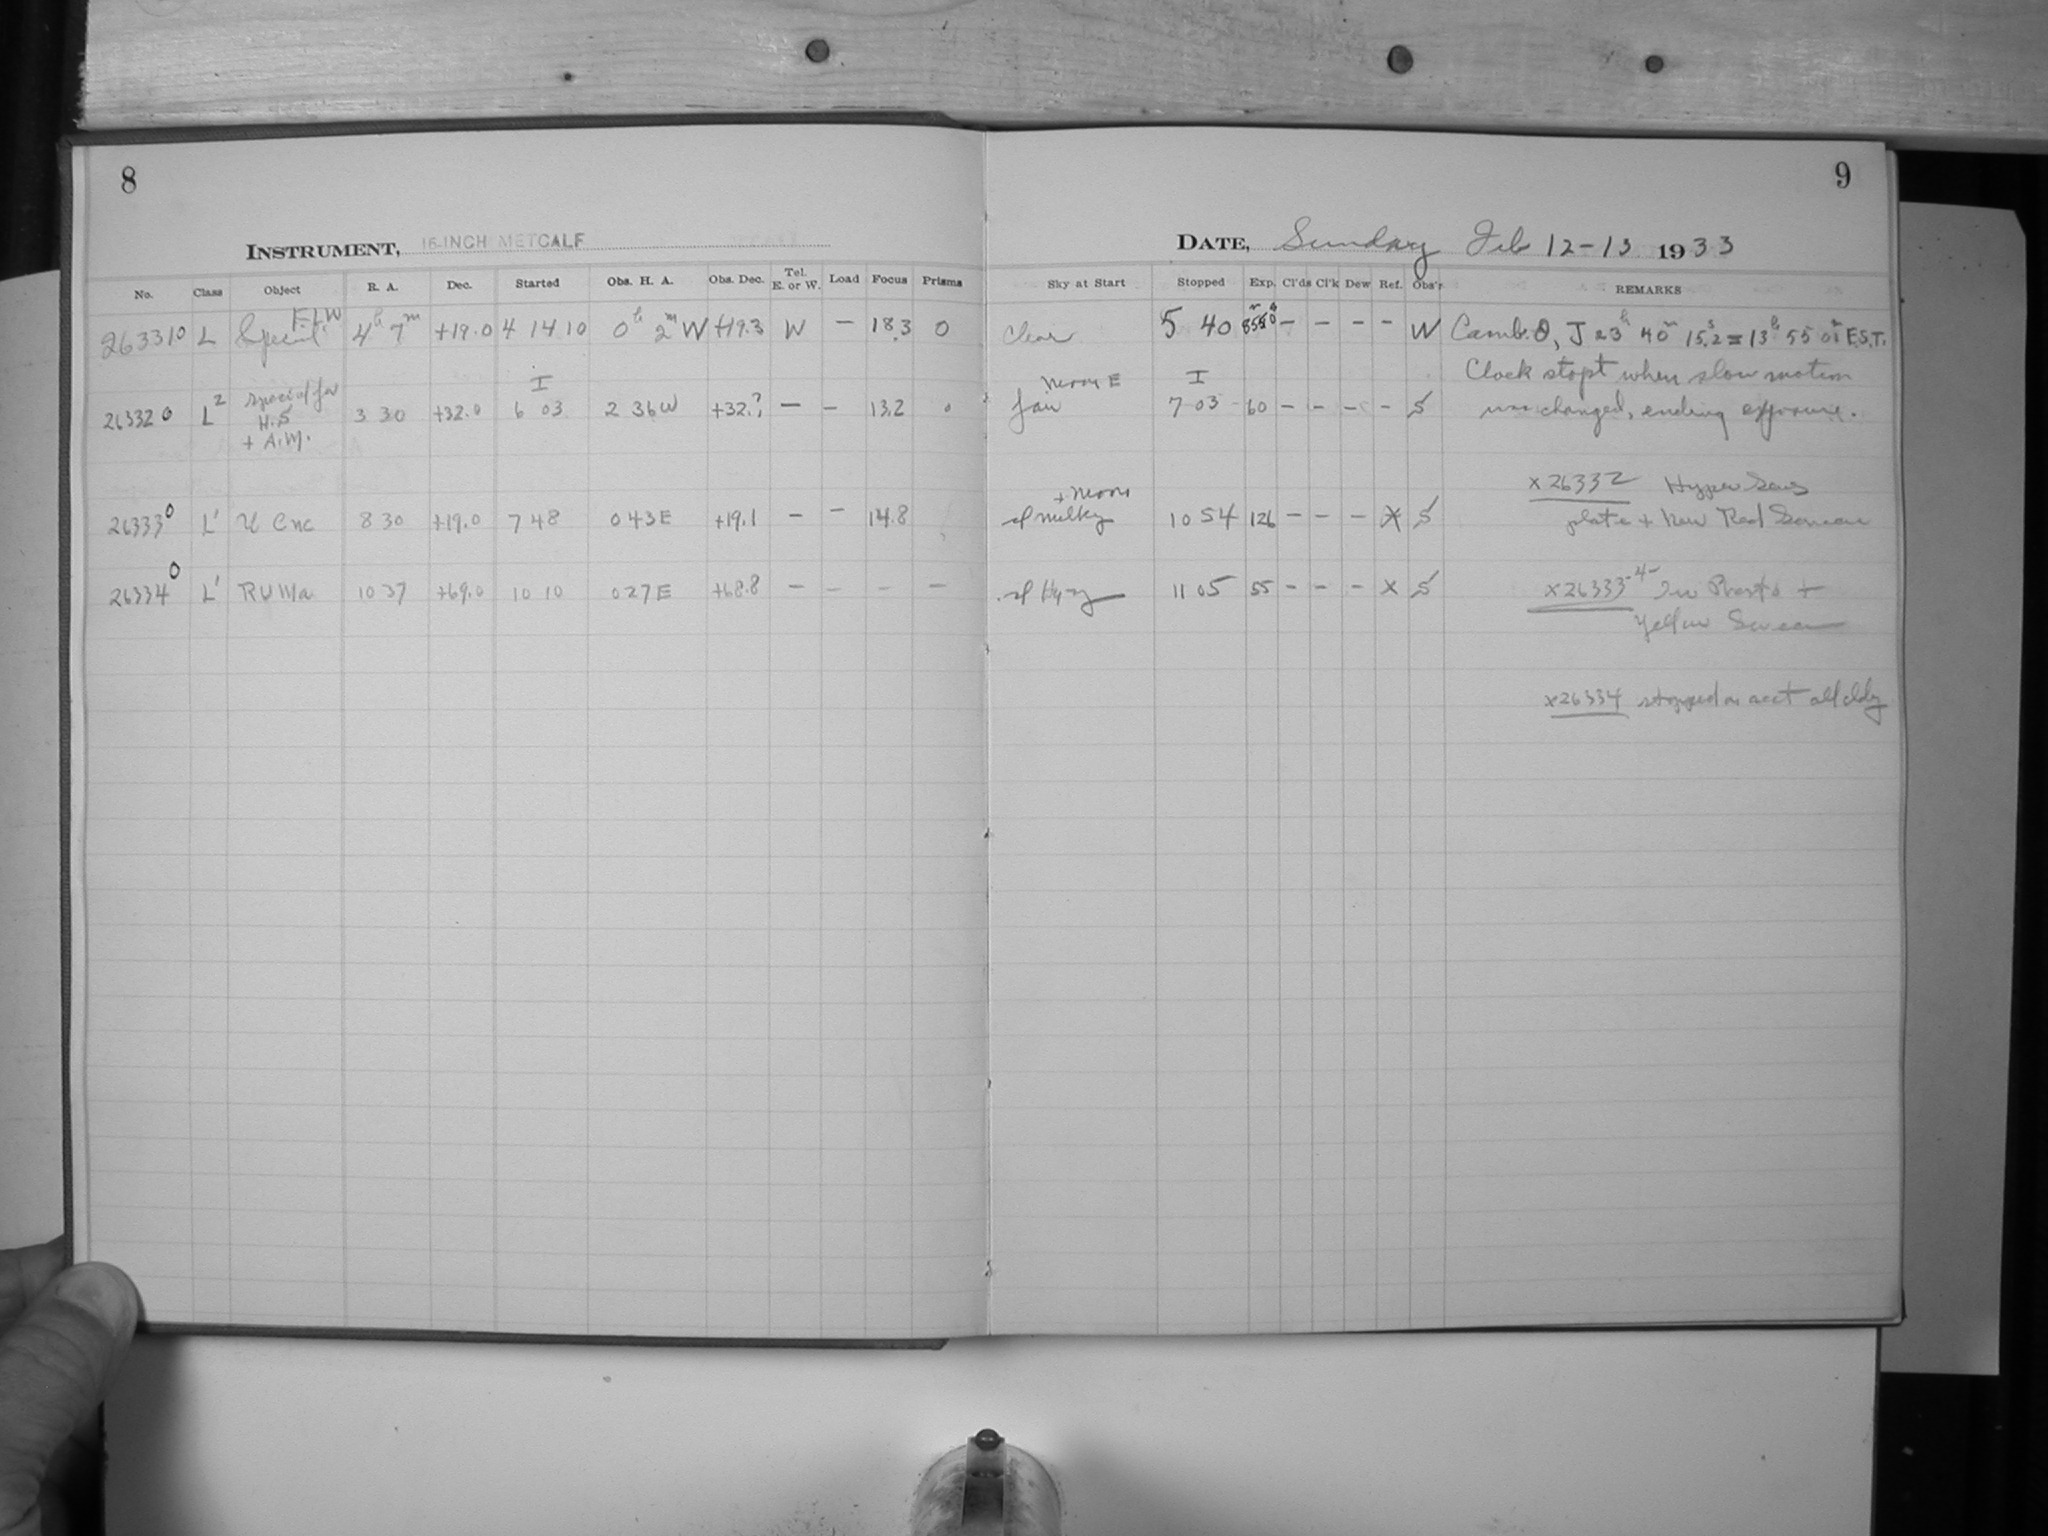 8
INSTRUMENT, 16-INCH METCALF
No. Class Object R. A. Dec. Started Obs. H. A. Obs. Dec. Tel. E. or W. Load Focus Prisms
26331 0 L Special F.L.W 4h 7m +19.0 4 14 10 0h 2m W +19.3 W — 18.3 0
26332 0 L2 special for H.S + A.M. 3 30 +32.0 I 6 03 2 36W +32.? — – 13.2 0
26333 0 L' U Cnc 8 30 +19.0 7 48 0 43E +19.1 – – 14.8
26334 0 L' RUMa 10 37 +69.0 10 10 0 27E +68.8 – – – –
9
DATE, Sunday Feb 12-13 1933
Sky at Start Stopped Exp. Cl'ds Cl'k Dew Ref. Obs'r REMARKS
Clear 5 40 – – – – W Camb. θ, J 23h 40m 15.s2 = 13h 55 01 E.S.T.
Clock stopt when slow motion
fair moon E I 7 03 60 – – – – S was changed, ending exposure.
x 26332 Hyper Sens
milky + moon 10 54 126 – – – X S plate + New Red Screen
11 05 55 – – – X S x26333-4- Im Presto +
Yellow Screen
x26334 stopped on acct all cldy